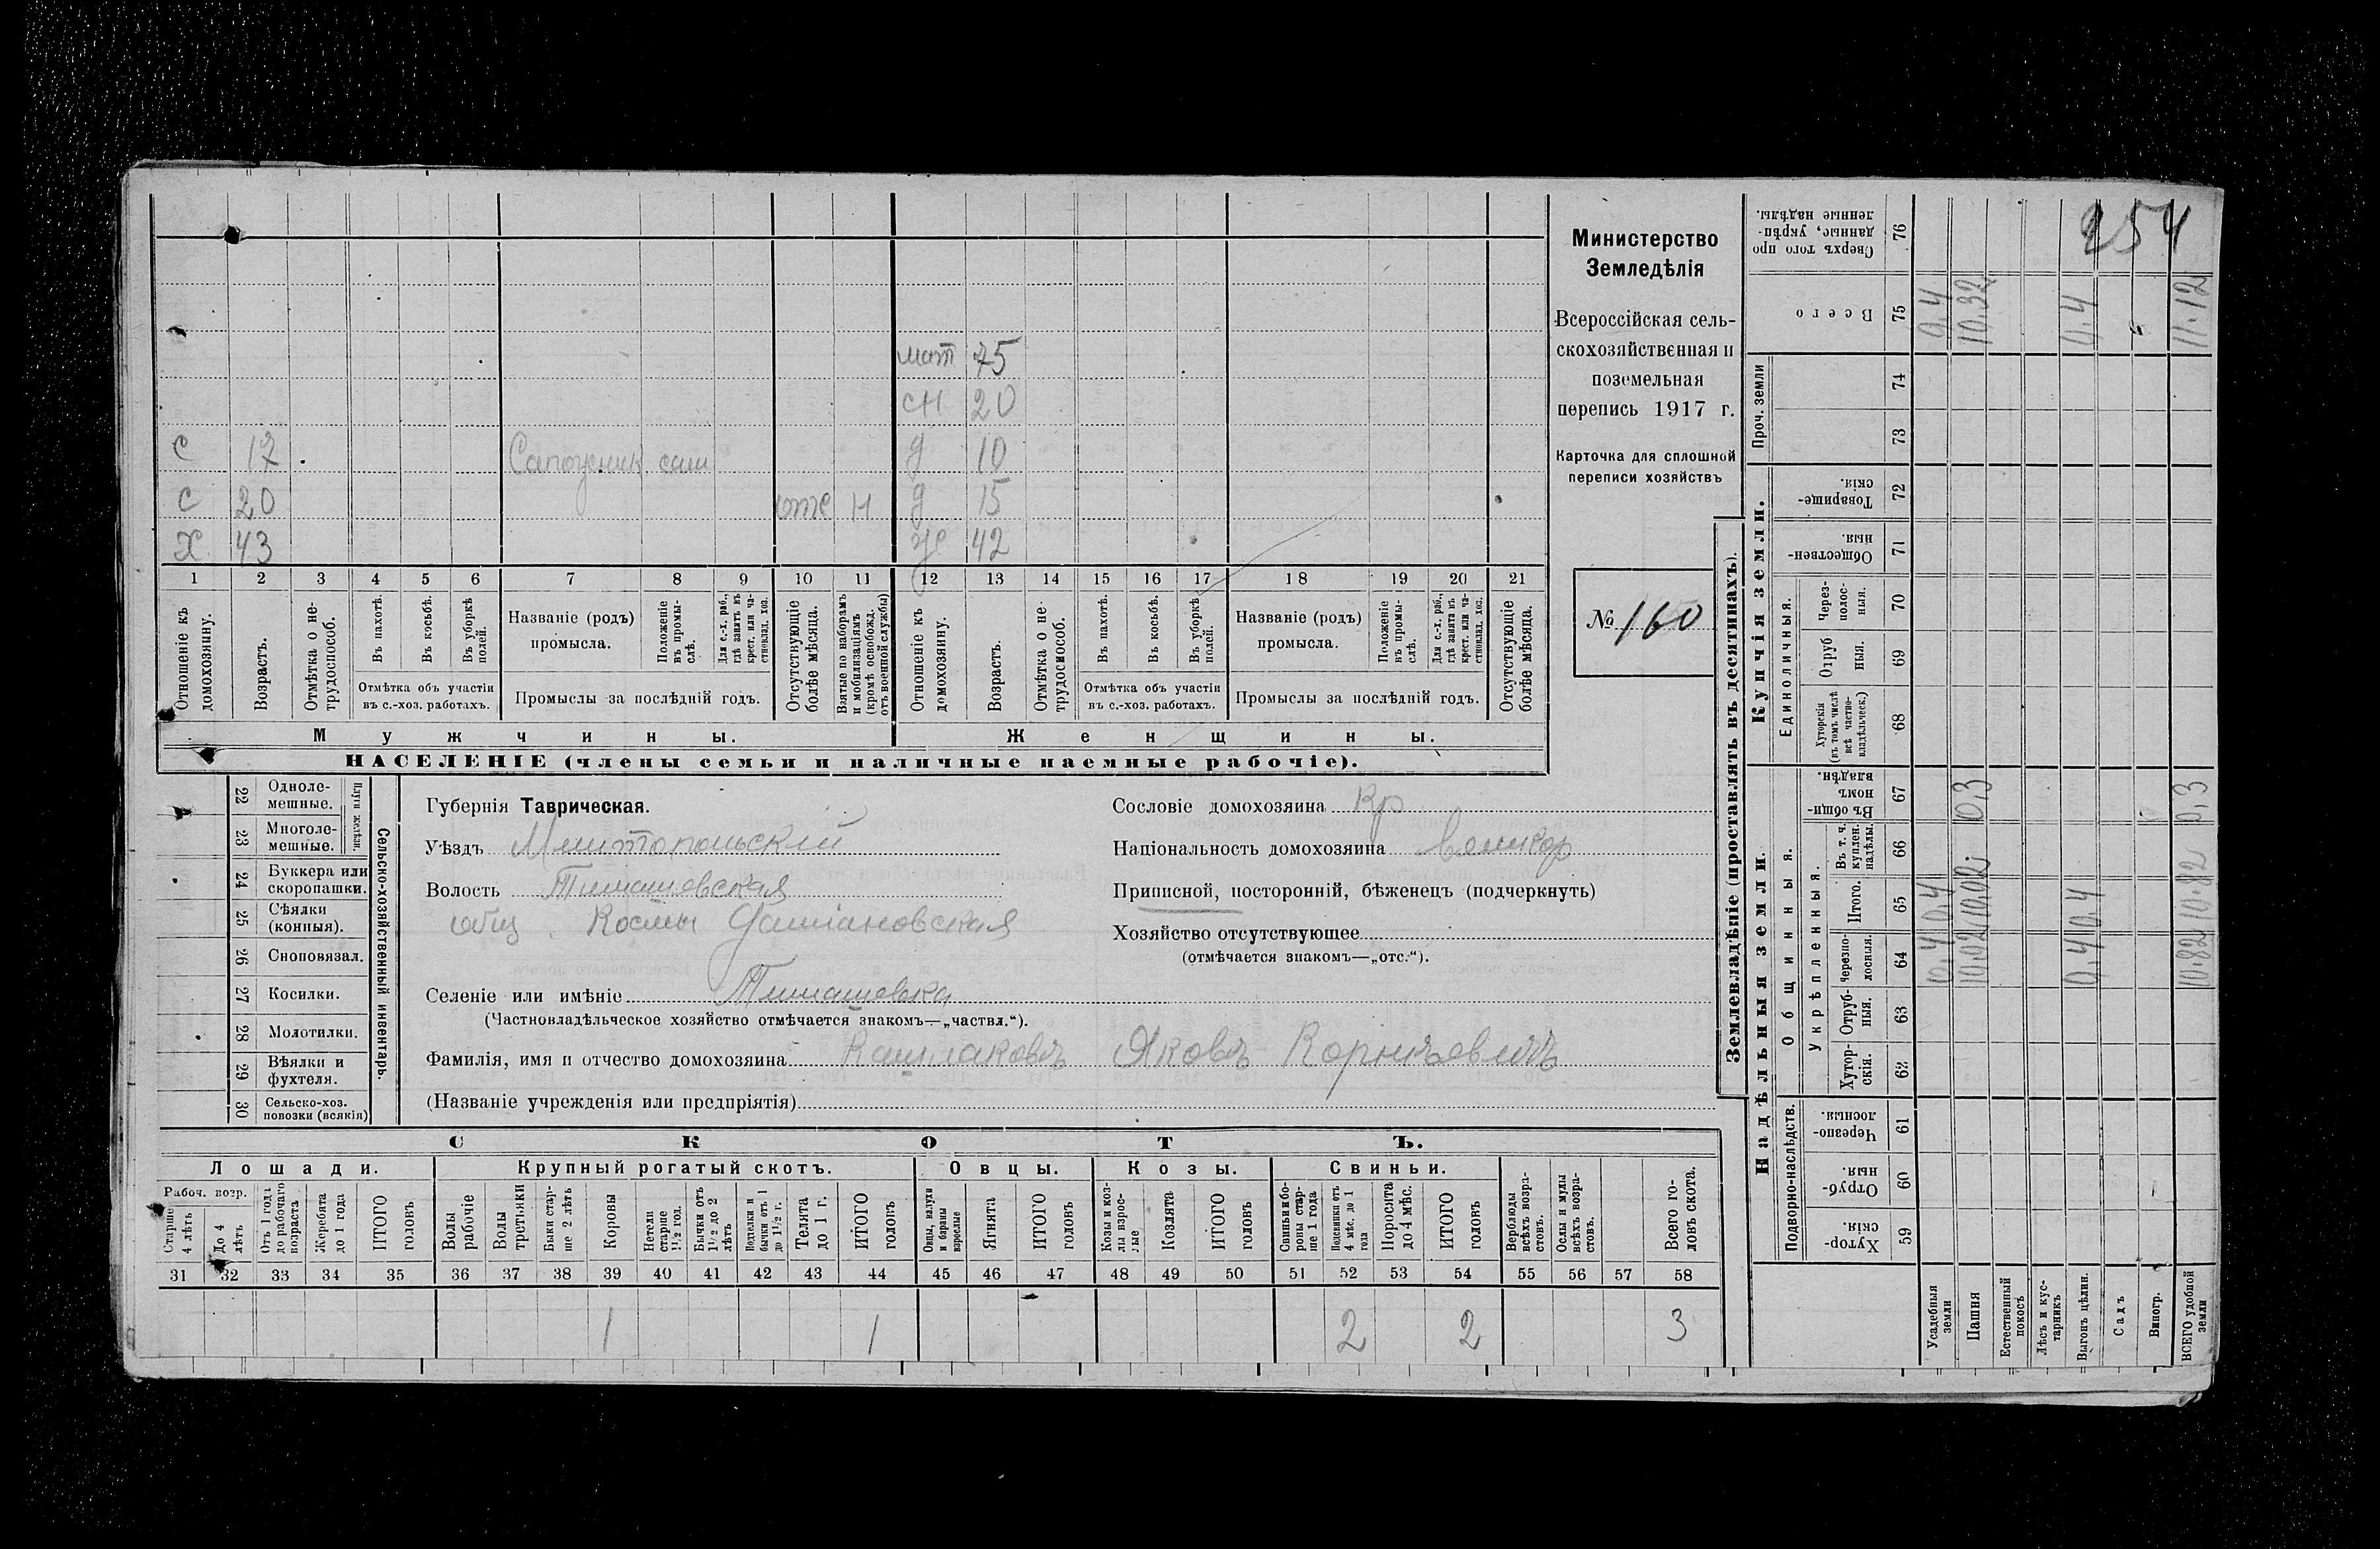 254
Министерство
Земледѣлія
Всероссійская сель-
скохозяйственная и
поземельная
перепись 1917 г.
Карточка для сплошной
переписи хозяйствъ
№ 160
мат 75
сн 20
с 17 Сапожник д 10
с 20 отс н д 15
х 43 же 42
1 2 3 4 5 6 7 8 9 10 11 12 13 14 15 16 17 18 19 20 21
Отношеніе къ домохозяину.
Возрастъ.
Отмѣтка о не-трудоспособ.
Въ пахотѣ.
Въ косьбѣ.
Въ уборкѣ полей.
Отмѣтка объ участіи
въ с.-хоз. работахъ.
Названіе (родъ)
промысла.
Положеніе въ промы-слѣ.
Для с.-х. раб., гдѣ занятъ въ крест. или ча-стновлад. хоз.
Промыслы за послѣдній годъ.
Отсутствующіе болѣе мѣсяца.
Взятые по наборамъ и мобилизаціямъ (кромѣ освобожд. отъ военной службы)
Отношеніе къ домохозяину.
Возрастъ.
Отмѣтка о не-трудоспособ.
Въ пахотѣ.
Въ косьбѣ.
Въ уборкѣ полей.
Отмѣтка объ участіи
въ с.-хоз. работахъ.
Названіе (родъ)
промысла.
Положеніе въ промы-слѣ.
Для с.-х. раб., гдѣ занята въ крест. или ча-стновлад. хоз.
Промыслы за послѣдній годъ.
Отсутствующіе болѣе мѣсяца.
Мужчины. Женщины.
НАСЕЛЕНІЕ (члены семьи и наличные наемные рабочіе).
22 Одноле-мешные.
23 Многоле-мешные.
Плуги желѣзн.
24 Буккера или скоропашки.
25 Сѣялки (конныя).
26 Сноповязал.
27 Косилки.
28 Молотилки.
29 Вѣялки и фухтеля.
30 Сельско-хоз. повозки (всякія)
Сельско-хозяйственный инвентарь.
Губернія Таврическая.
Уѣздъ Мелитопольскій
Волость Тимашевская
общ. Косьмы Даміановская
Селеніе или имѣніе Тимашевка
(Частновладѣльческое хозяйство отмѣчается знакомъ—„частвл.“).
Фамилія, имя и отчество домохозяина Кашлаковъ Яковъ Корнѣевичъ
(Названіе учрежденія или предпріятія)
Сословіе домохозяина Кр
Національность домохозяина Великор
Приписной, посторонній, бѣженецъ (подчеркнуть)
Хозяйство отсутствующее
(отмѣчается знакомъ—„отс.“).
СКОТЪ.
Лошади. Крупный рогатый скотъ. Овцы. Козы. Свиньи.
Рабоч. возр.
Старше 4 лѣтъ
До 4 лѣтъ
Отъ 1 года до рабочаго возраста
Жеребята до 1 года
ИТОГО головъ
Волы рабочіе
Волы третьяки
Быки стар-ше 2 лѣтъ
Коровы
Нетели старше 1½ год.
Бычки отъ 1½ до 2 лѣтъ
Подтелки и бычки отъ 1 до 1½ г.
Телята до 1 г.
ИТОГО головъ
Овцы, валухи и бараны взрослые
Ягнята
ИТОГО головъ
Козы и коз-лы взрос-лые
Козлята
ИТОГО головъ
Свиньи и бо-ровы стар-ше 1 года
Подсвинки отъ 4 мѣс. до 1 года
Поросята до 4 мѣс.
ИТОГО головъ
Верблюды всѣхъ возра-стовъ.
Ослы и мулы всѣхъ возра-стовъ.
Всего го-ловъ скота.
31 32 33 34 35 36 37 38 39 40 41 42 43 44 45 46 47 48 49 50 51 52 53 54 55 56 57 58
1 1 2 2 3
Землевладѣніе (проставлять въ десятинахъ).
Надѣльныя земли. Купчія земли. Проч. земли
Подворно-наслѣдств.
Общинныя.
Укрѣпленныя.
Единоличныя.
Хутор-скія. 59
Отруб-ныя. 60
Черезпо-лосныя. 61
Хутор-скія. 62
Отруб-ныя. 63
Черезпо-лосныя. 64
Итого. 65
Въ т. ч. куплен. надѣлы. 66
Въ общи-номъ владѣн. 67
Хуторскія (въ томъ числѣ всѣ частно-владѣльческ.) 68
Отруб ныя. 69
Через-полос-ныя. 70
Обществен-ныя. 71
Товарище-скія. 72
73
74
Всего 75
Сверхъ того про данные, укрѣп-ленные надѣлы. 76
Усадебныя земли 0,4 0,4 0,4
Пашня 10,02 10,02 0,3 10.32
Естественный покосъ
Лѣсъ и кус-тарникъ
Выгонъ цѣлин. 0,4 0,4 0,4
Садъ
Виногр.
ВСЕГО удобной земли 10.82 10.82 0,3 11.12